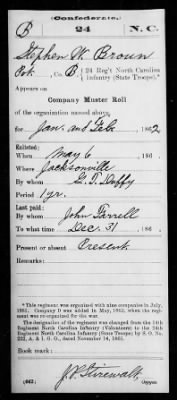 (Confederate.)
B 24 N.C.
Stephen W. Broun
Pvt., Co. B, 24 Reg't North Carolina Infantry (State Troops).*
Appears on
Company Muster Roll
of the organization named above,
for Jan. and Feb., 1862.
Enlisted:
When May 6, 186 .
Where Jacksonville
By whom G. T. Duffy
Period 1 yr.
Last paid:
By whom John Farrell
To what time Dec. 31, 186 .
Present or absent Present
Remarks:
*This regiment was organized with nine companies in July,
1861. Company D was added in May, 1862, when the regi-
ment was re-organized for the war.
The designation was changed from the 14th
Regiment North Carolina Infantry (Volunteers) to the 24th
Regiment North Carolina Infantry (State Troops) by S. O. No.
222, A. & I. G. O., dated November 14, 1861.
Book mark:
(642) J. P. Stirewalt
Copyist.